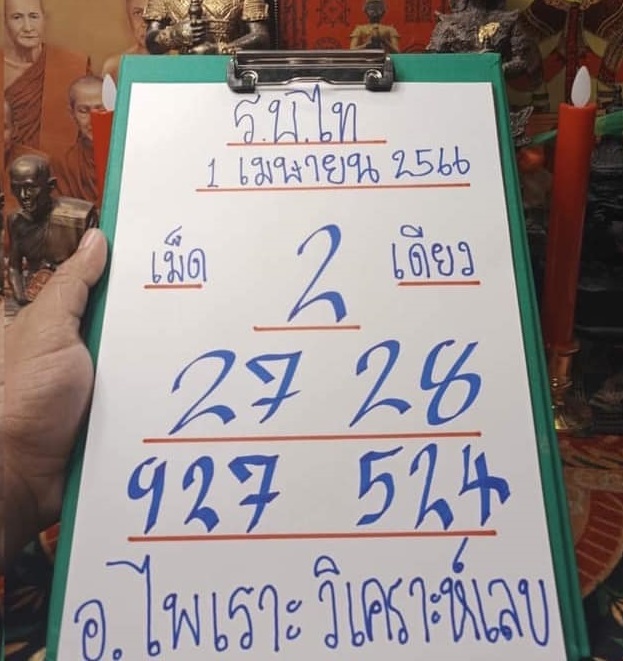 ร.บ.ไท
1 เมษายน 2566
เม็ด 2 เดียว
27 28
927 524
อ. ไพเราะ วิเคราะห์เลข